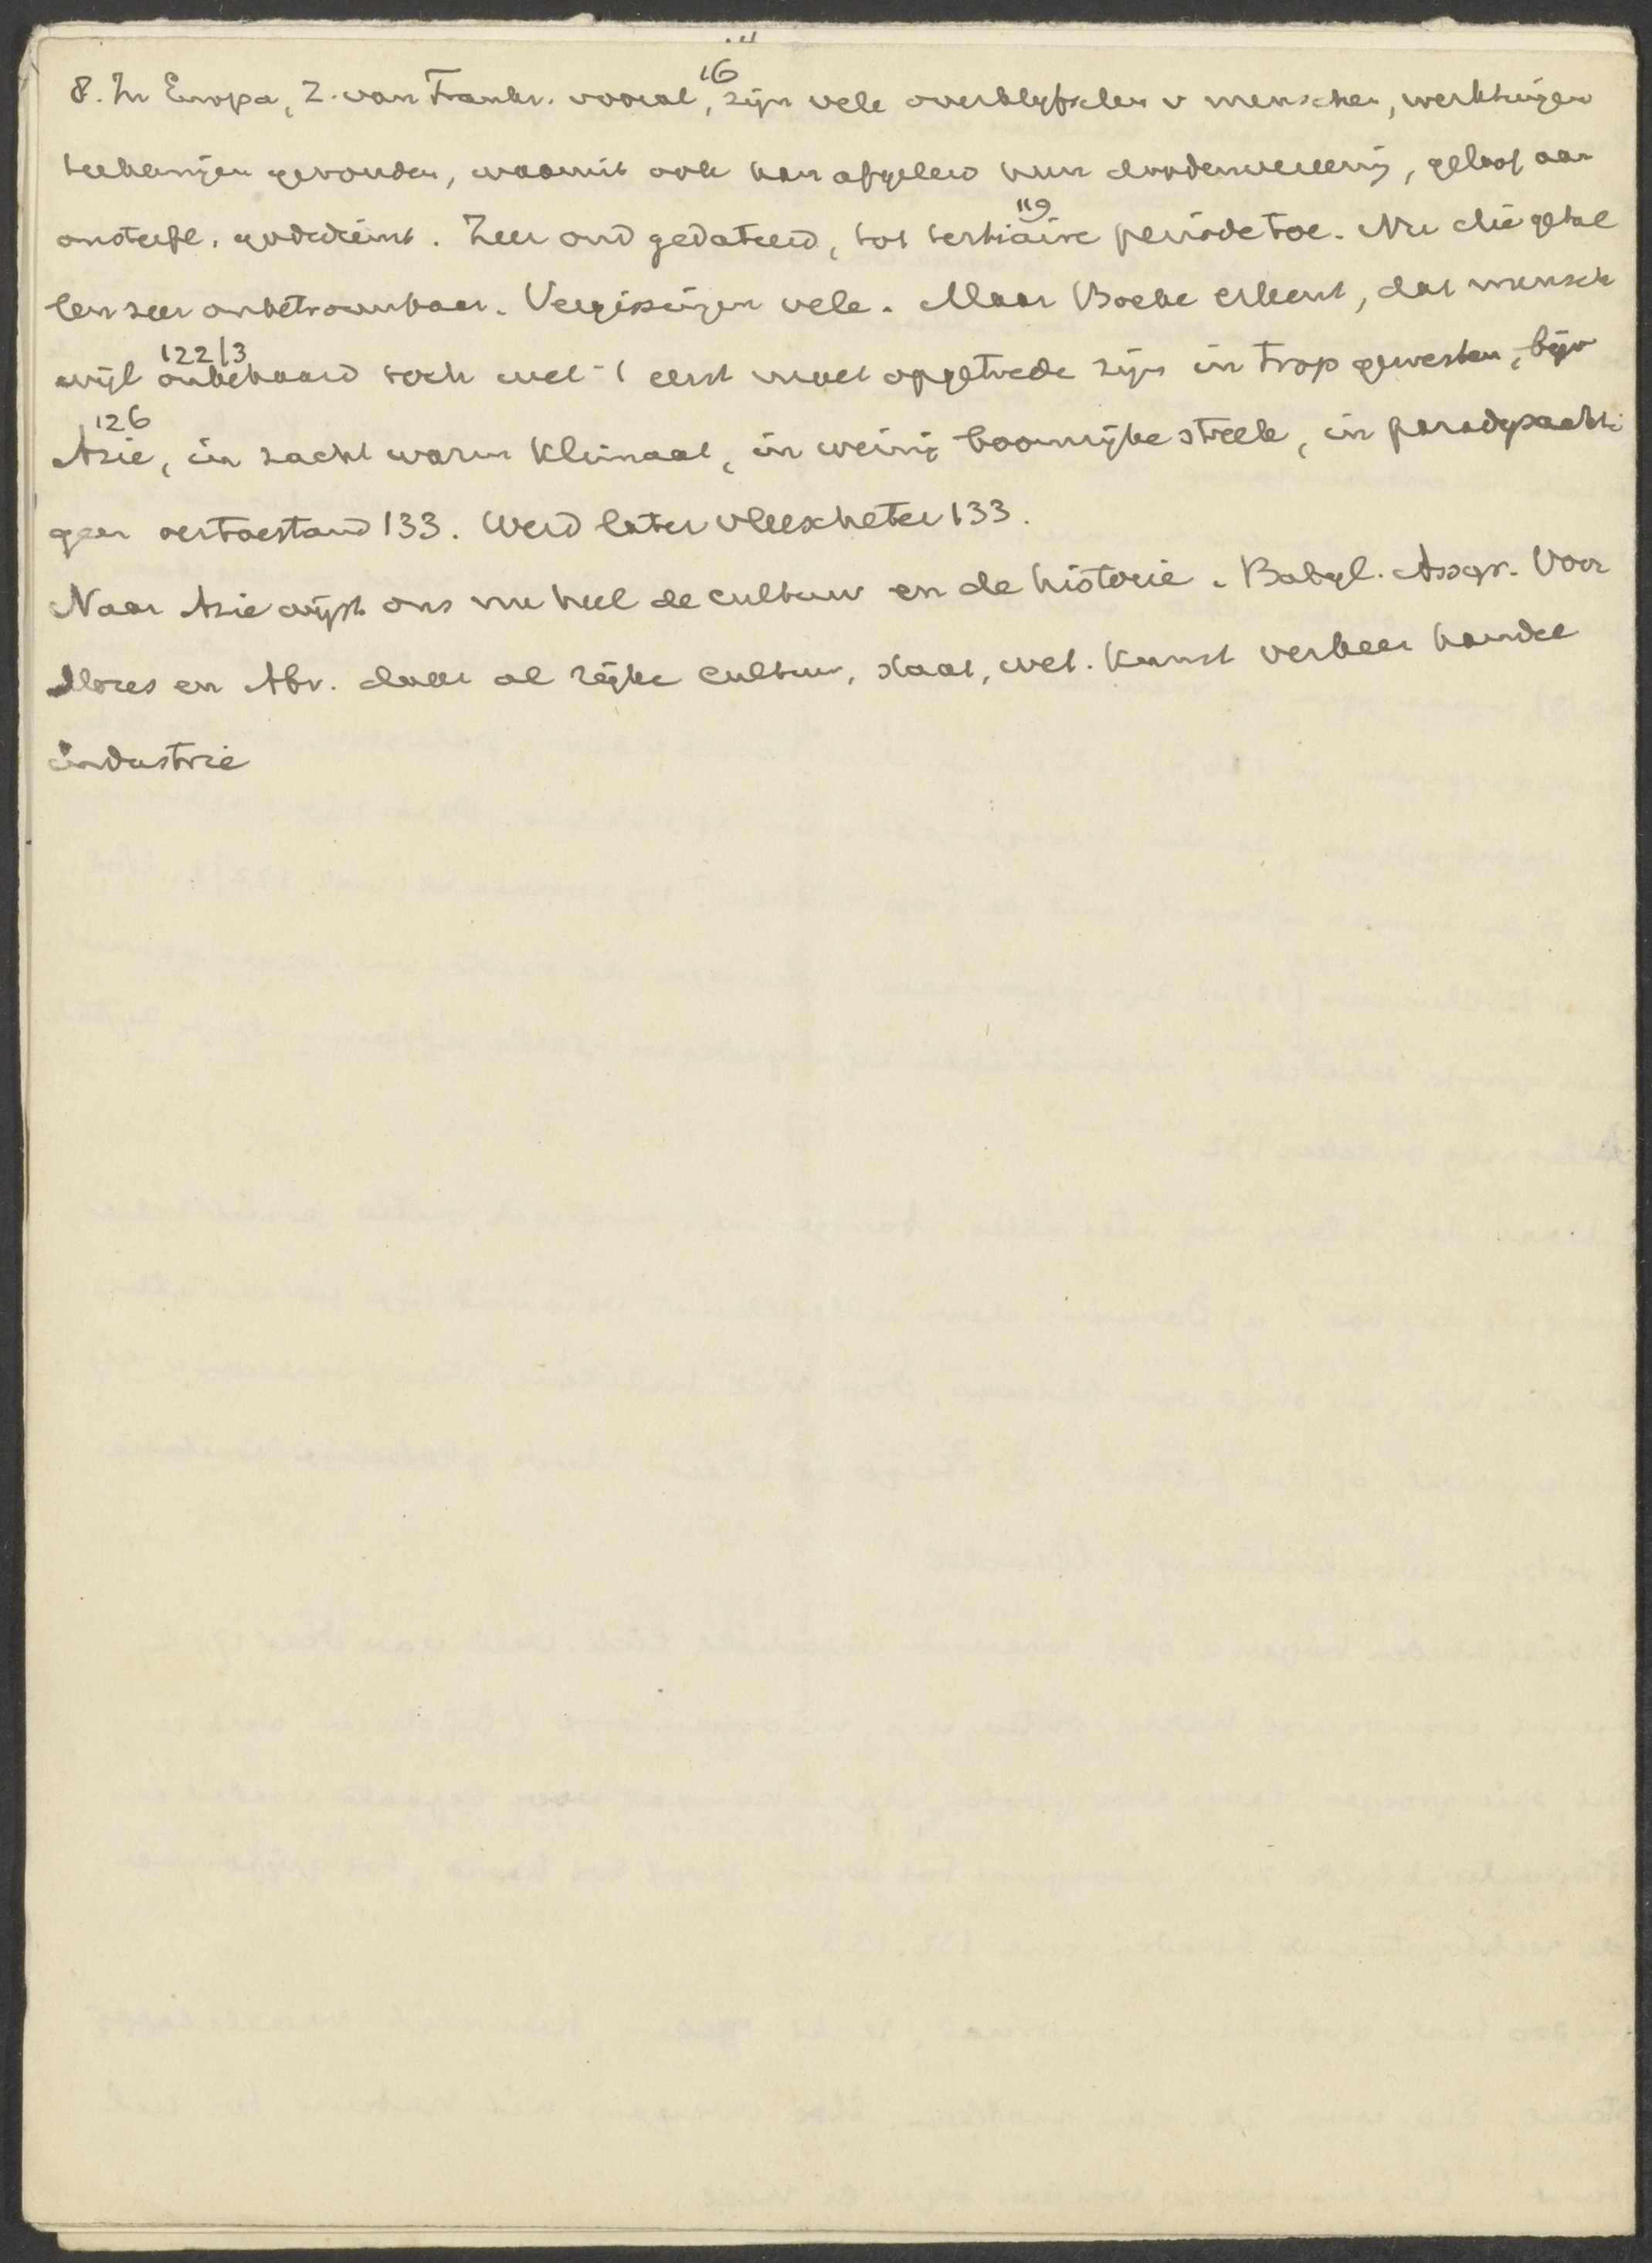 8. In Europa, Z. van Frankr. vooral, 116 zijn vele overblyfselen v menschen, werktuigen
teekeningen gevonden, waaruit ook kan afgeleid hun doodenvereering, geloof aan
onsterfl. godsdienst. Zeer oud gedateerd, tot tertiaire 119 periode toe. Nu die getal
len zeer onbetrouwbaar. Vergissingen vele. Maar Boeke erkent, dat mensch
wijl onbehaard 122/3 toch wel 't eerst moet opgetrede zijn in trop gewesten, bijv
Azie, 126 in zacht warm klimaat, in weinig boomrijke streek, in paradysachti
gen oertoestand 133. Werd later vleescheter 133.
Naar Azie wijst ons nu heel de cultuur en de historie. Babyl. Assyr. Voor
Mozes en Abr. daar al rijke cultuur, staat, wet. kunst verkeer handel
industrie